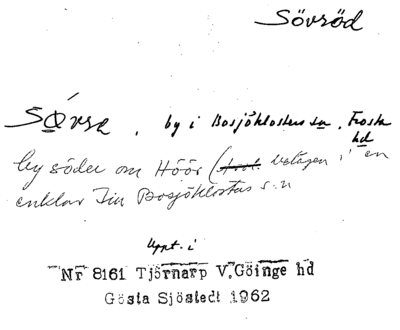 Sövröd
Sövra, by i Bosjöklosters sn, Frosta
hd
by söder om Höör ( belägen i en
enklav Bosjöklosters s:n
Uppt. i
Nr 8161 Tjörnarp V. Göinge hd
Gösta Sjöstedt 1962